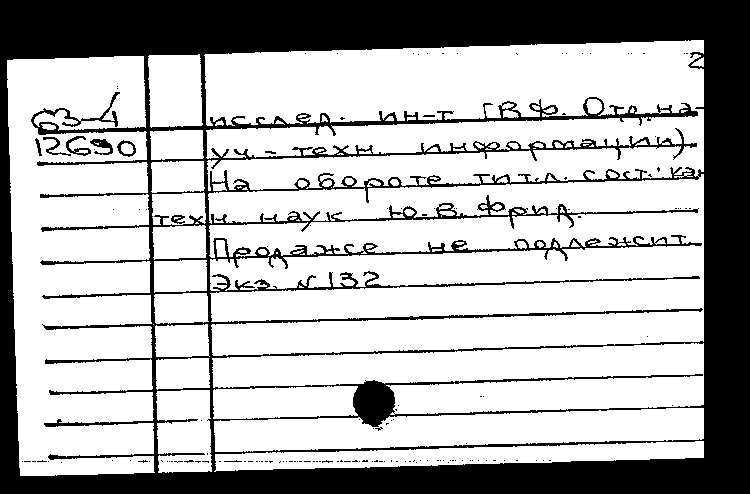 2
63-4
12690
исслед. ин-т ГВФ. Отд. на-
уч.-техн. информации).
На обороте тит.л. сост.: кан
техн. наук Ю.В. Фрид.
Продаже не подлежит.
Экз. N 132